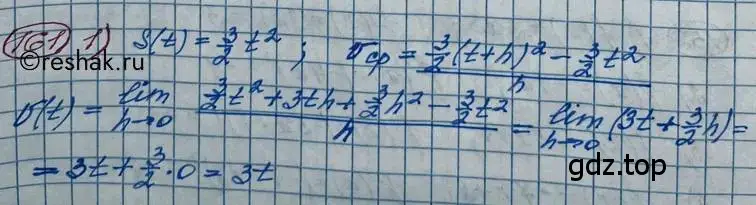 761 1) S(t) = 3/2 t² ; υср = (3/2 (t+h)² − 3/2 t²)/h
©reshak.ru
υ(t) = lim h→0 (3/2 t² + 3th + 3/2 h² − 3/2 t²)/h = lim h→0 (3t + 3/2 h) =
= 3t + 3/2 · 0 = 3t
gdz.top